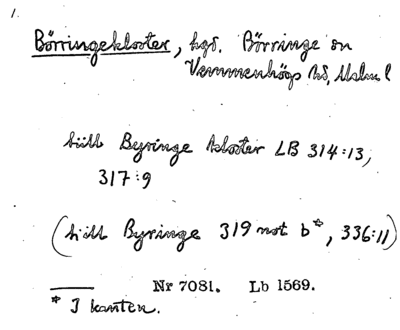 1.
Börringekloster, hgd. Börringe sn
Vemmenhögs hd, Malm l
till Byringe kloster LB 314:13,
317:9
(till Byringe 319 not b*, 336:11)
Nr 7081. Lb 1569.
* I kanten.